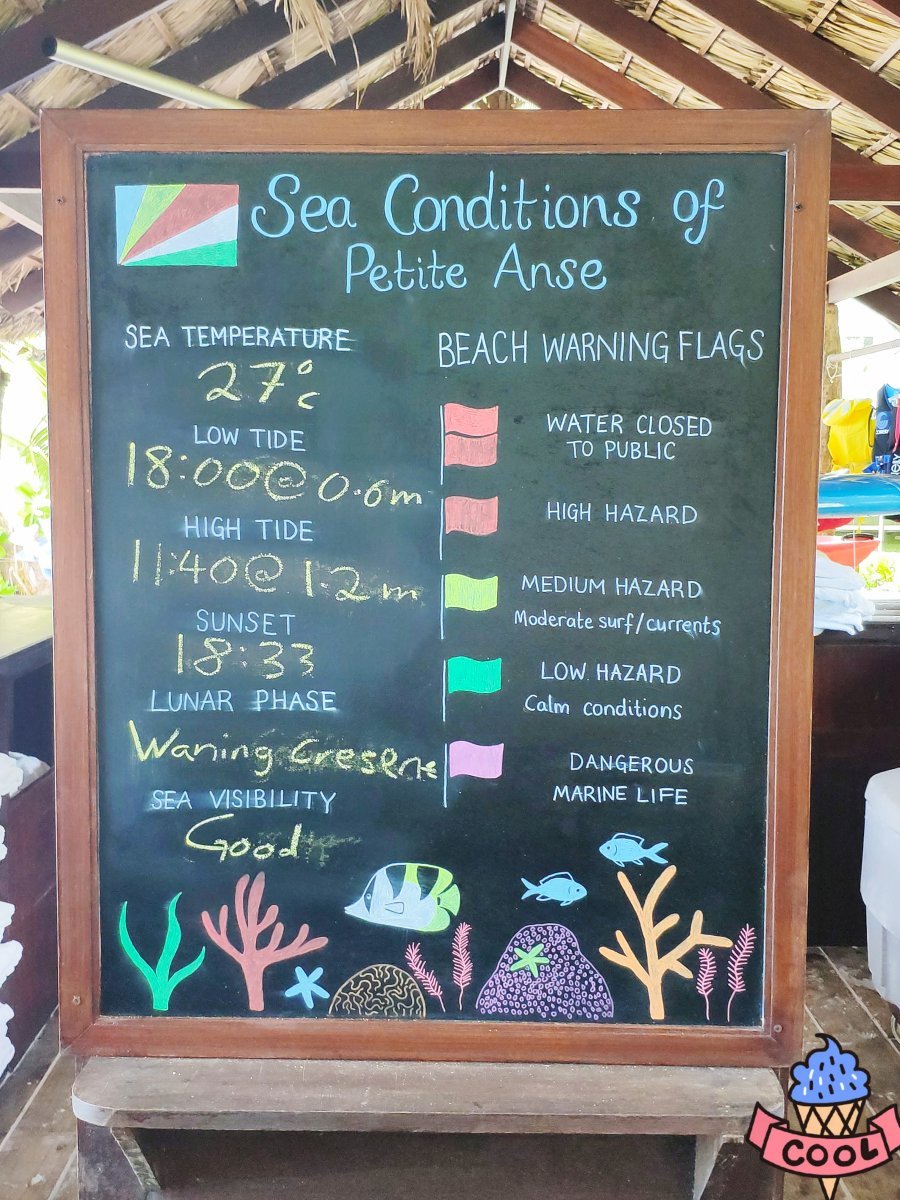 Sea Conditions of
Petite Anse
SEA TEMPERATURE
27°c
LOW TIDE
18:00@0.6m
HIGH TIDE
11:40@1.2m
SUNSET
18:33
LUNAR PHASE
Waning
SEA VISIBILITY
Good
BEACH WARNING FLAGS
WATER CLOSED
TO PUBLIC
HIGH HAZARD
MEDIUM HAZARD
Moderate surf/currents
LOW HAZARD
Calm conditions
DANGEROUS
MARINE LIFE
COOL